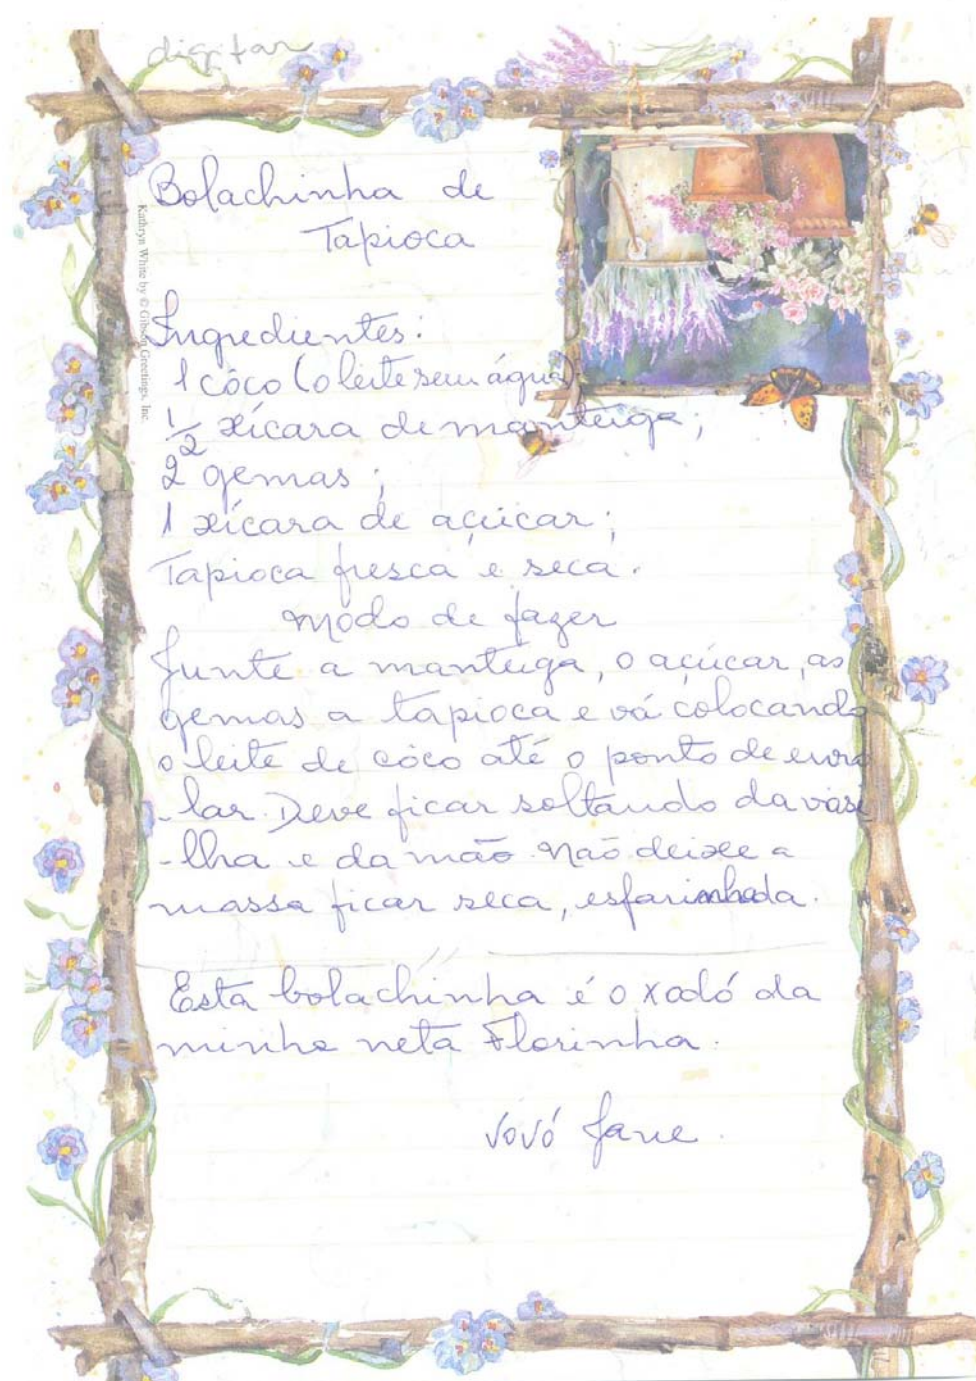 digitar
Bolachinha de
Tapioca
Kathryn White by © Gibson Greetings, Inc.
Ingredientes:
1 côco (o leite sem água)
1/2 xícara de manteiga;
2 gemas;
1 xícara de açúcar;
Tapioca fresca e seca.
Modo de fazer
Junte a manteiga, o açúcar, as
gemas a tapioca e vá colocando
o leite de côco até o ponto de enro
-lar. Deve ficar soltando da vasi
-lha e da mão. Não deixe a
massa ficar seca, esfarinhada.
Esta bolachinha é o xodó da
minha neta Florinha.
Vovó Jane.